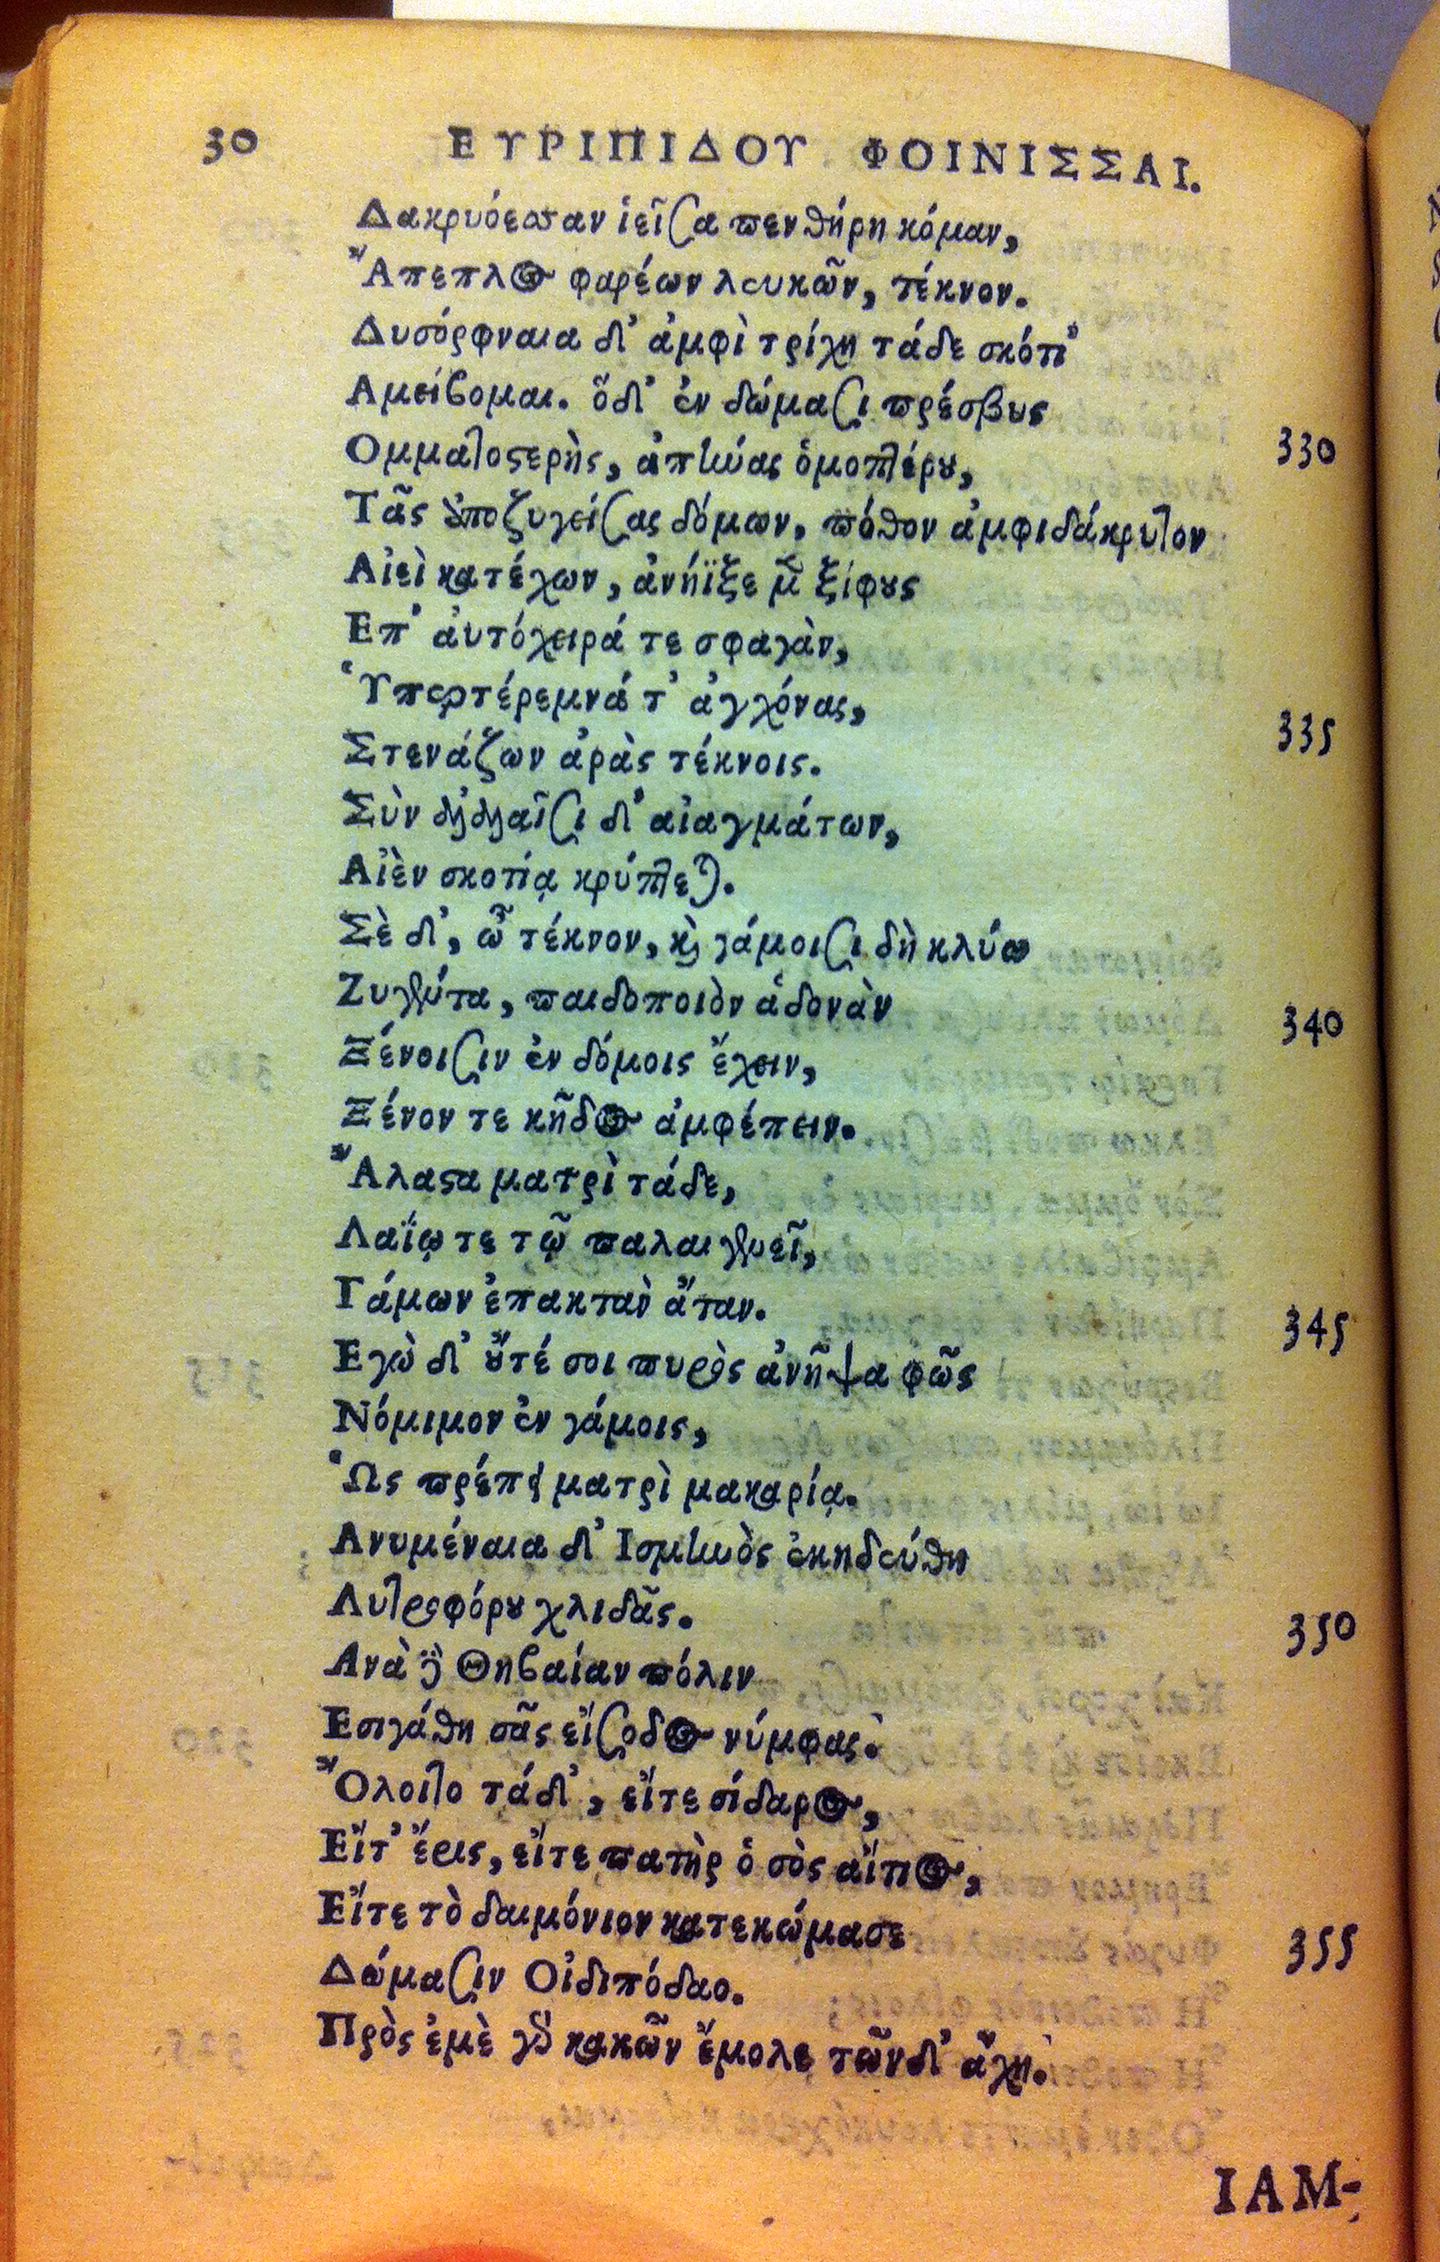 30 ΕΥΡΙΠΙΔΟΥ ΦΟΙΝΙΣΣΑΙ.
Δακρυόεσσαν ἱεῖσα πενθήρη κόμαν,
Ἄπεπλος φαρέων λευκῶν, τέκνον.
Δυσόρφναια δ' ἀμφὶ τρίχη τάδε σκότι'
Αμείβομαι. ὅδ' ἐν δώμασι πρέσβυς
Ομματοστερὴς, ἀπήνας ὁμοπτέρου, 330
Τᾶς ὑποζυγείσας δόμων, πόθον ἀμφιδάκρυτον
Αἰεὶ κατέχων, ἀνήϊξε μὲν ξίφους
Επ' ἀυτόχειρά τε σφαγὰν,
Ὑπερτέρεμνά τ' ἀγχόνας,
Στενάζων ἀρὰς τέκνοις. 335
Σὺν ἀλαλαῖσι δ' αἰαγμάτων,
Αἰὲν σκοτίᾳ κρύπτεται.
Σὲ δ', ὦ τέκνον, καὶ γάμοισι δὴ κλύω
Ζυγέντα, παιδοποιὸν ἁδονὰν 340
Ξένοισιν ἐν δόμοις ἔχειν,
Ξένον τε κῆδος ἀμφέπειν.
Ἄλαστα ματρὶ τάδε,
Λαΐῳ τε τῷ παλαιγενεῖ,
Γάμων ἐπακτὰν ἄταν. 345
Εγὼ δ' οὔτέ σοι πυρὸς ἀνῆψα φῶς
Νόμιμον ἐν γάμοις,
Ὡς πρέπει ματρὶ μακαρίᾳ.
Ανυμέναια δ' Ισμηνὸς ἐκηδεύθη
Λυτροφόρου χλιδᾶς. 350
Ανὰ δὲ Θηβαίαν πόλιν
Εσιγάθη σᾶς εἴσοδος νύμφας.
Ὄλοιτο τάδ', εἴτε σίδαρος,
Εἴτ' ἔρις, εἴτε πατὴρ ὁ σὸς αἴτιος,
Εἴτε τὸ δαιμόνιον κατεκώμασε 355
Δώμασιν Οἰδιπόδαο.
Πρὸς ἐμὲ γὰρ κακῶν ἔμολε τῶνδ' ἄχη.
ΙΑΜ-